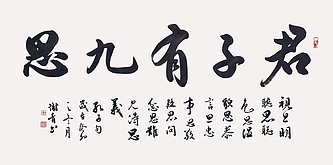 君子有九思
視思明
聽思聰
色思溫
貌思恭
言思忠
事思敬
疑思問
忿思難
見得思
義
孔子句
之冬月
書